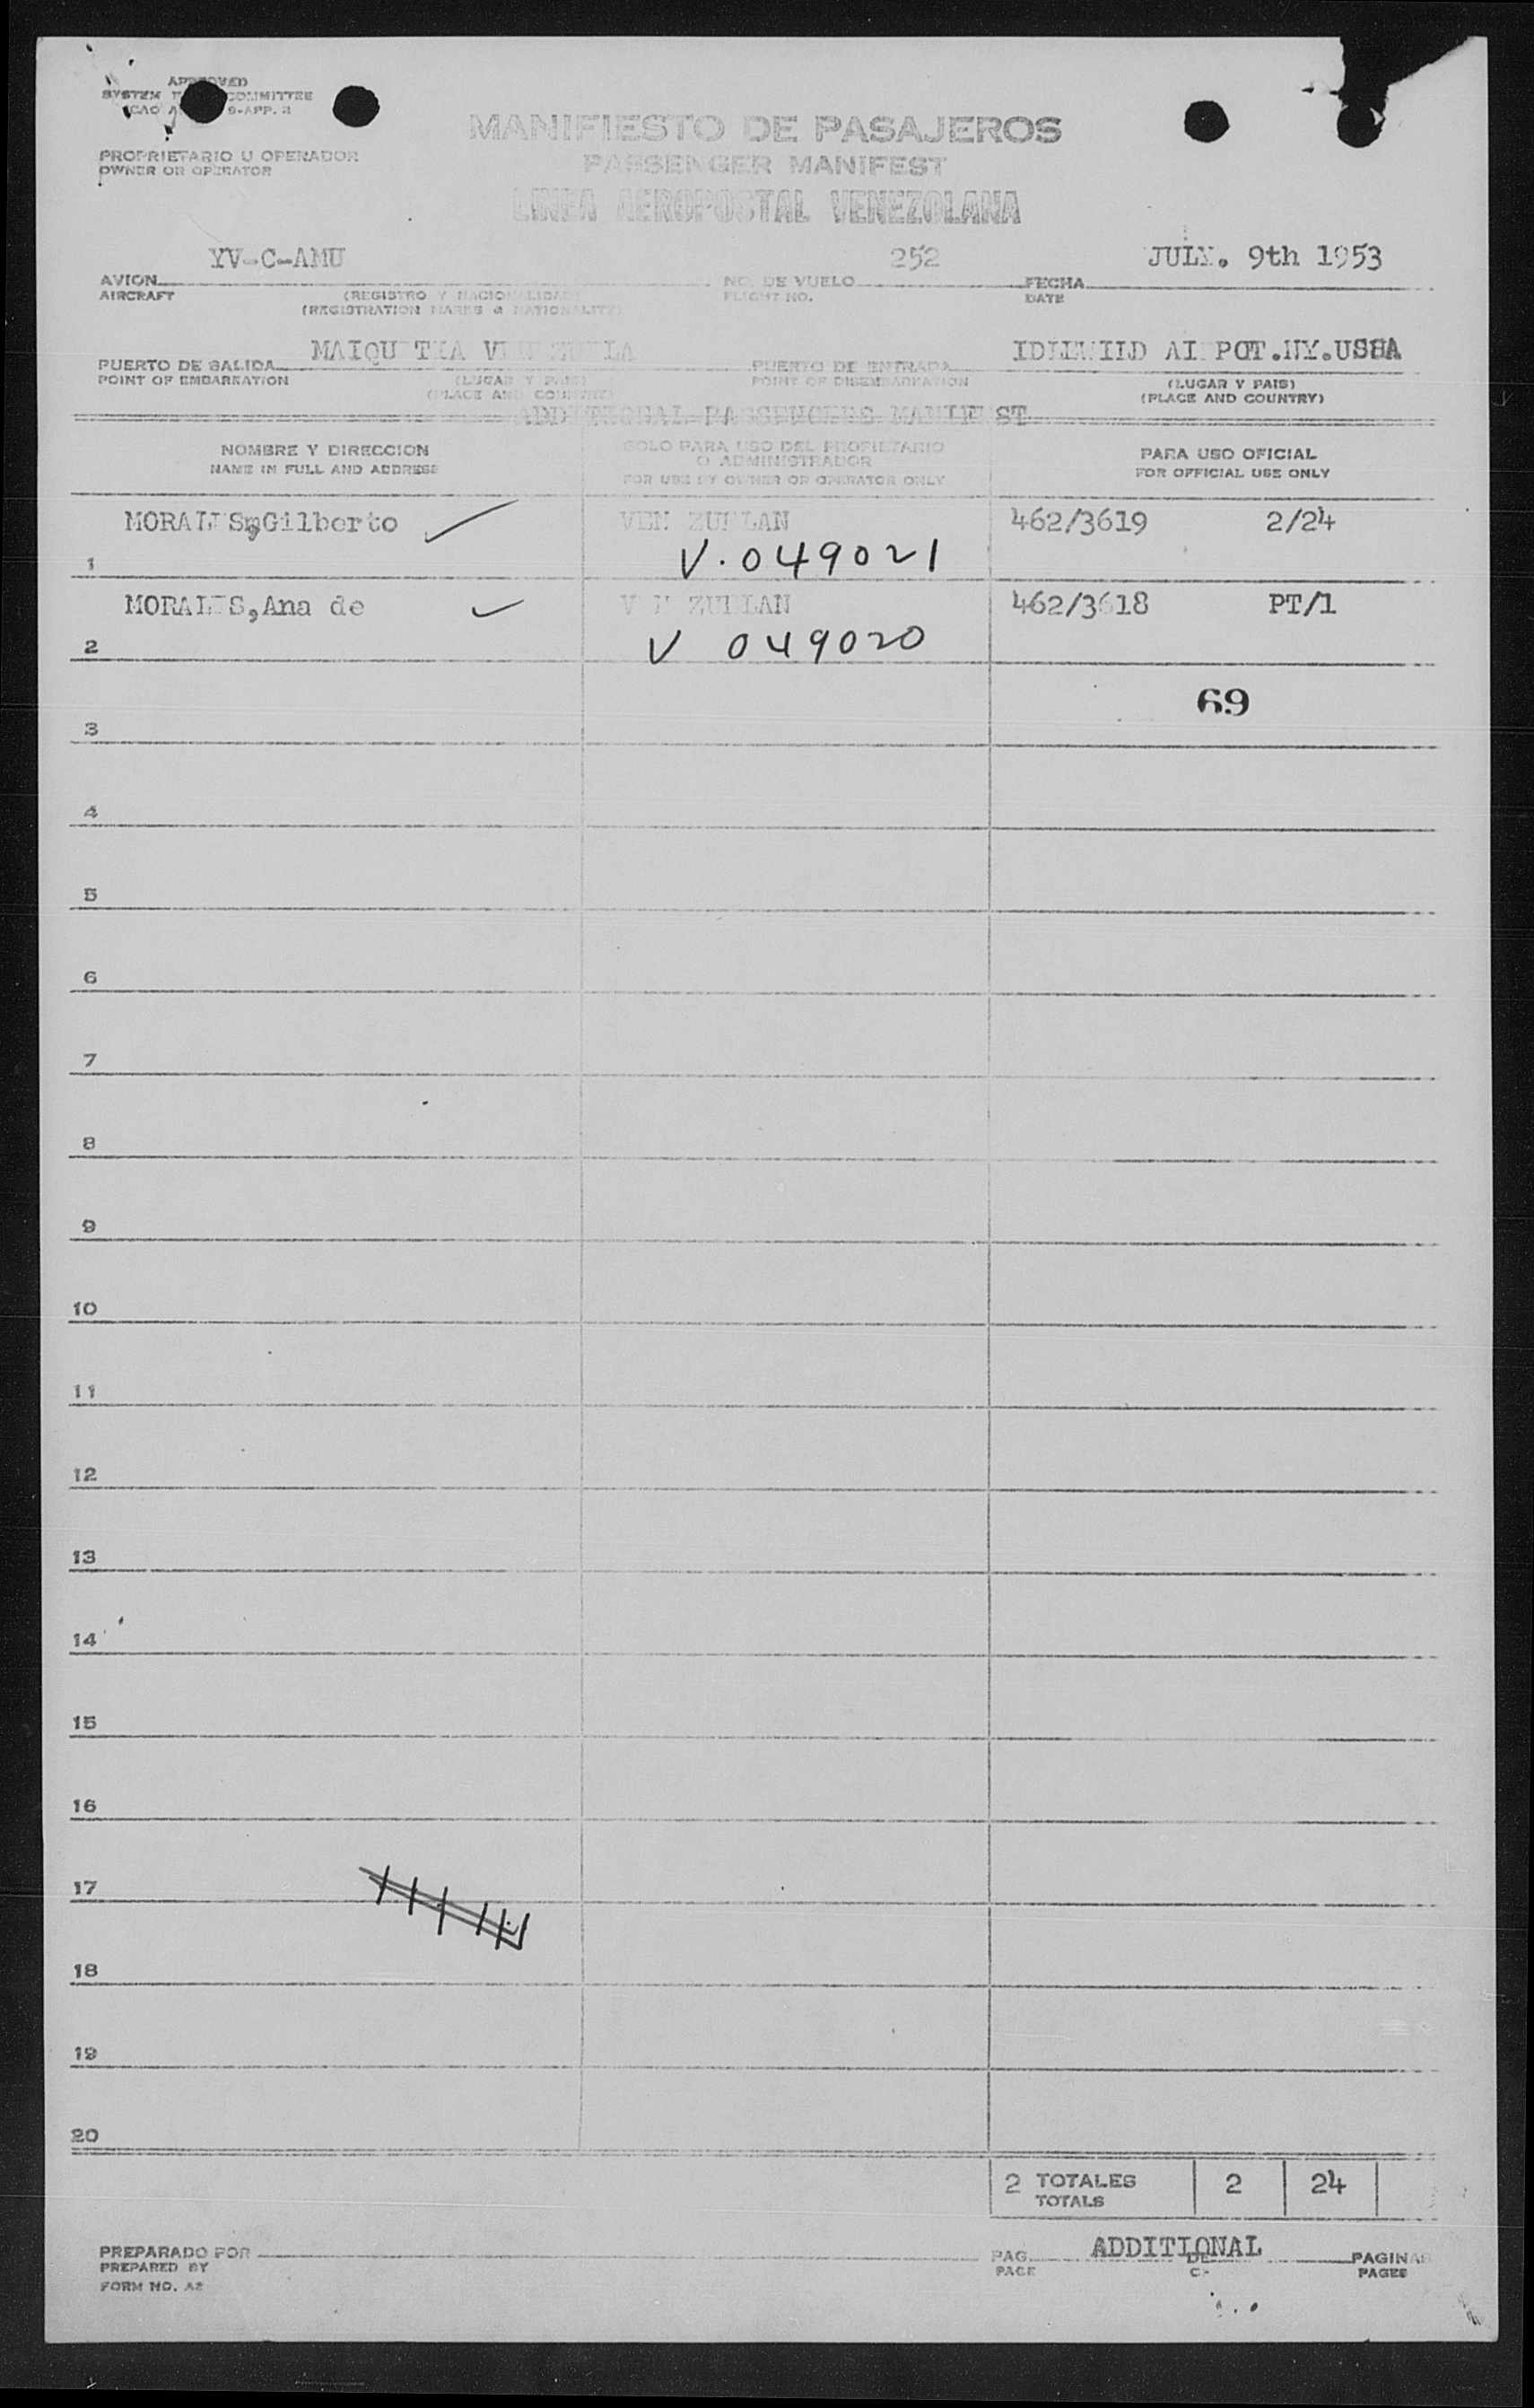 APPROVED
SYSTEM COMMITTEE
ICAO 9-APP. 2
MANIFIESTO DE PASAJEROS
PROPRIETARIO U OPERADOR
OWNER OR OPERATOR
PASSENGER MANIFEST
LINEA AEROPOSTAL VENEZOLANA
YV-C-AMU 252 JULY. 9th 1953
AVION NO. DE VUELO FECHA
AIRCRAFT (REGISTRO Y NACIONALIDAD) FLIGHT NO. DATE
(REGISTRATION MARKS & NATIONALITY)
MAIQUETIA VENEZUELA IDLEWILD AI POT.NY.USSA
PUERTO DE SALIDA PUERTO DE ENTRADA
POINT OF EMBARKATION (LUGAR Y PAIS) POINT OF DISEMBARKATION (LUGAR Y PAIS)
(PLACE AND COUNTRY) (PLACE AND COUNTRY)
ADDITIONAL PASSENGERS MANIFEST
NOMBRE Y DIRECCION SOLO PARA USO DEL PROPIETARIO PARA USO OFICIAL
NAME IN FULL AND ADDRESS O ADMINISTRADOR FOR OFFICIAL USE ONLY
FOR USE BY OWNER OR OPERATOR ONLY
MORALES,Gilberto VENEZUELAN 462/3619 2/24
1 V.049021
MORALES,Ana de VENEZUELAN 462/3618 PT/1
2 V 049020
69
3
4
5
6
7
8
9
10
11
12
13
14
15
16
17
18
19
20
2 TOTALES 2 24
TOTALS
PREPARADO POR PAG. ADDITIONAL DE PAGINAS
PREPARED BY PAGE OF PAGES
FORM NO. A2